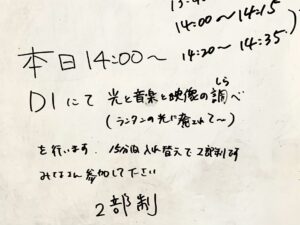 14:00～14:15
本日14:00～ 14:20～14:35
D1にて 光と音楽と映像の調べ
しら
(ランタンの光に癒されて～)
を行います。15分の入れ替えで2部制です
みなさん参加して下さい
2部制